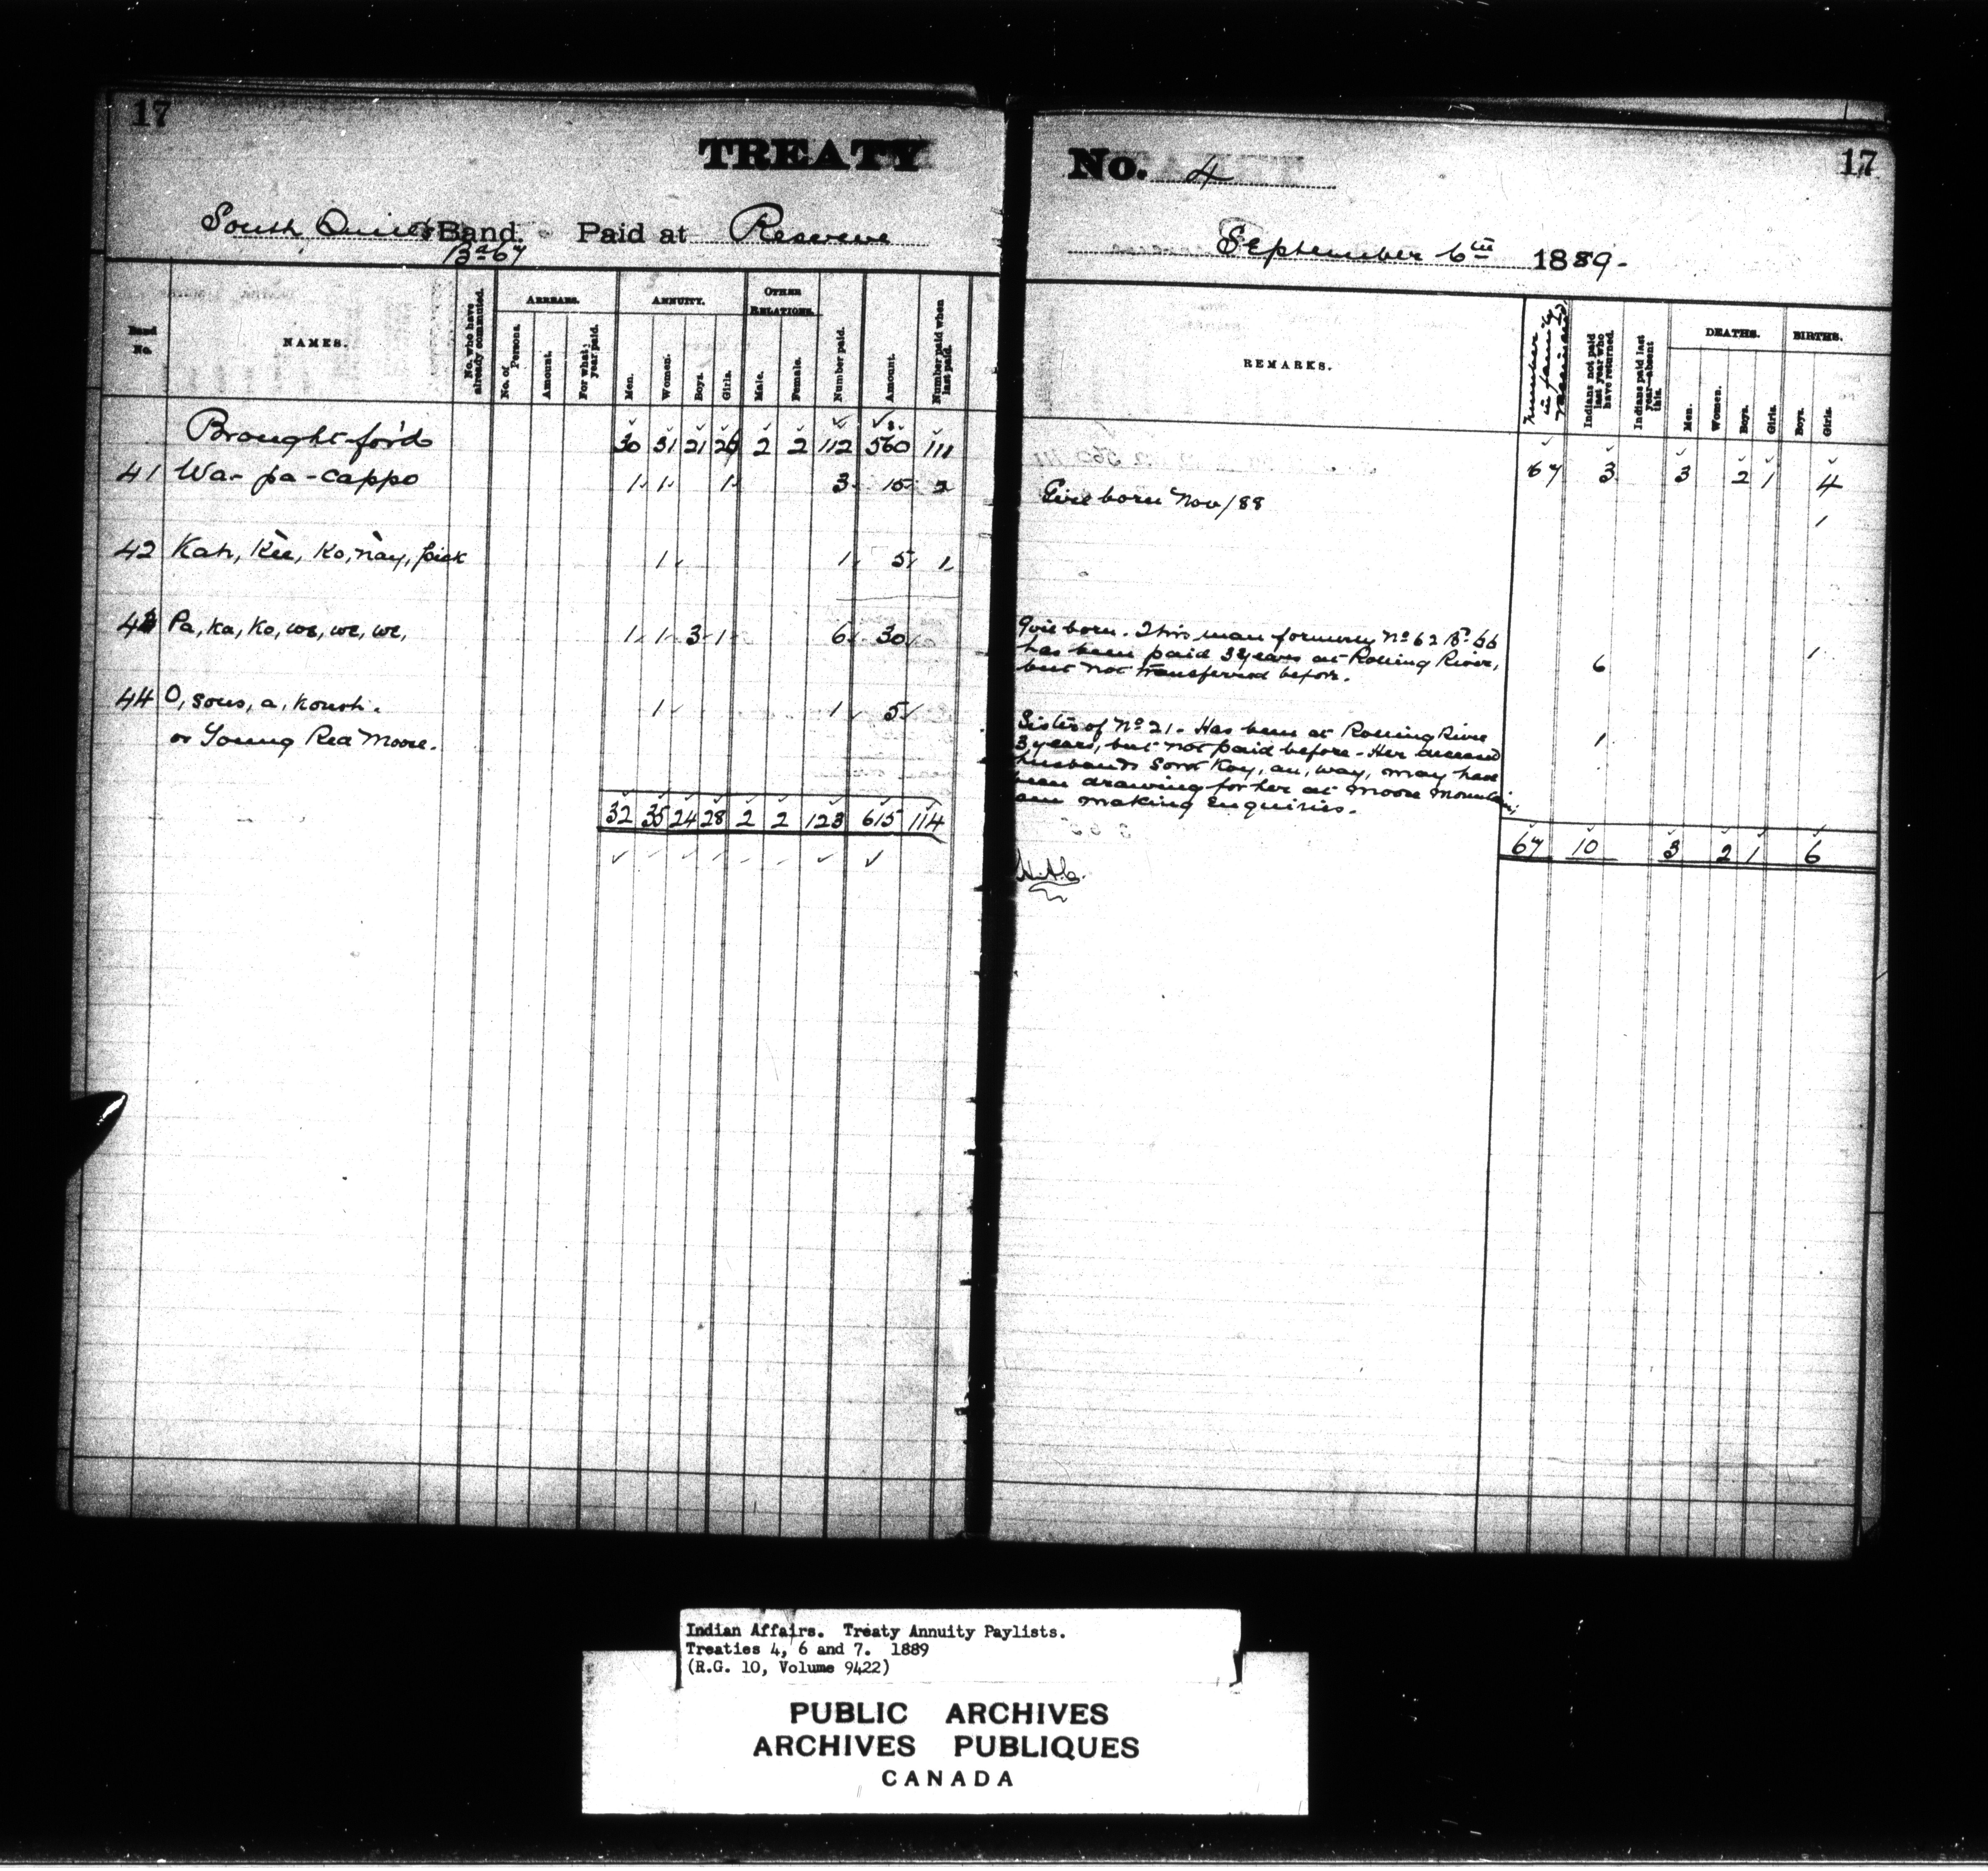 17
TREATY
South Quill's Band. Paid at Reserve
Bd 67
Band No.
NAMES.
No. who have already commuted.
ARREARS.
No. of Persons.
Amount.
For what year paid.
ANNUITY.
Men.
Women.
Boys.
Girls.
OTHER RELATIONS.
Male.
Female.
Number paid.
Amount.
Number paid when last paid.
Brought for'd 30 31 21 26 2 2 112 560 111
41 Wa-pa-cappo 1 1 1 3 15 2
42 Kah, Kee, Ko, nay, pick 1 1 5 1
43 Pa, Ka, Ko, we, we, we, 1 1 3 1 6 30
44 O, sous, a, koush. 1 1 5
or Young Red Moose.
32 35 24 28 2 2 123 615 114
No. 4
17
September 6th 1889.
REMARKS.
Number in family
Indians not paid last year who have returned.
Indians paid last year—absent this.
DEATHS.
Men.
Women.
Boys.
Girls.
BIRTHS.
Boys.
Girls.
67 3 3 2 1 4
Girl born Nov/88 1
Girl born. This man formerly No 62 Bd 66
has been paid 3 years at Rolling River, 6 1
but not transferred before.
Sister of No 21. Has been at Rolling River
3 years, but not paid before - Her deceased 1
husband's son Kay, an, way, may have
been drawing for her at Moose Mountain;
am making enquiries.
67 10 3 2 1 6
Indian Affairs. Treaty Annuity Paylists.
Treaties 4, 6 and 7. 1889
(R.G. 10, Volume 9422)
PUBLIC ARCHIVES
ARCHIVES PUBLIQUES
CANADA